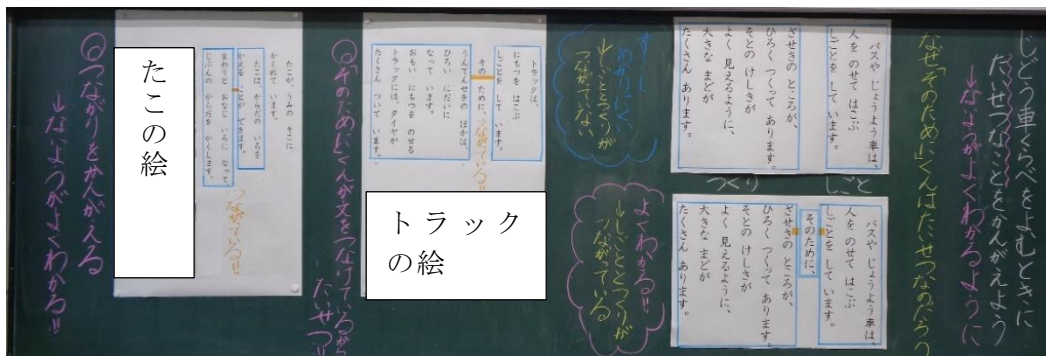 じどう車くらべをよむときに
だいせつなことをかんがえよう
→ないようがよくわかるように
なぜ「そのために」くんはたいせつなのだろう
バスや じょうよう車は、
人を のせて はこぶ
しごとを して います。
ざせきの ところが、
ひろく つくって あります。
そとの けしきが
よく 見えるように、
大きな まどが
たくさん あります。
しごと
つくり
バスや じょうよう車は、
人を のせて はこぶ
しごとを して います。
そのために、
ざせきの ところが、
ひろく つくって あります。
そとの けしきが
よく 見えるように、
大きな まどが
たくさん あります。
すこし
わかりにくい
→しごととつくりが
つながっていない
よくわかる!!
→しごととつくりが
つながっている
トラックは、
にもつを はこぶ
しごとを して います。
その ために、
つながっている!!
うんてんせきの ほかは、
ひろい にだいに
なって います。
おもい にもつを のせる
トラックには、タイヤが
たくさん ついて います。
トラック
の絵
◎「そのために」くんが文をつなげているから
たいせつ!!
たこが、うみの そこに
かくれて います。
たこは、からだの いろを
かえる ことが できます。
まわりと おなじ いろに なって、
じぶんの からだを かくします。
つながっている!!
たこの絵
◎つながりをかんがえる
→ないようがよくわかる!!